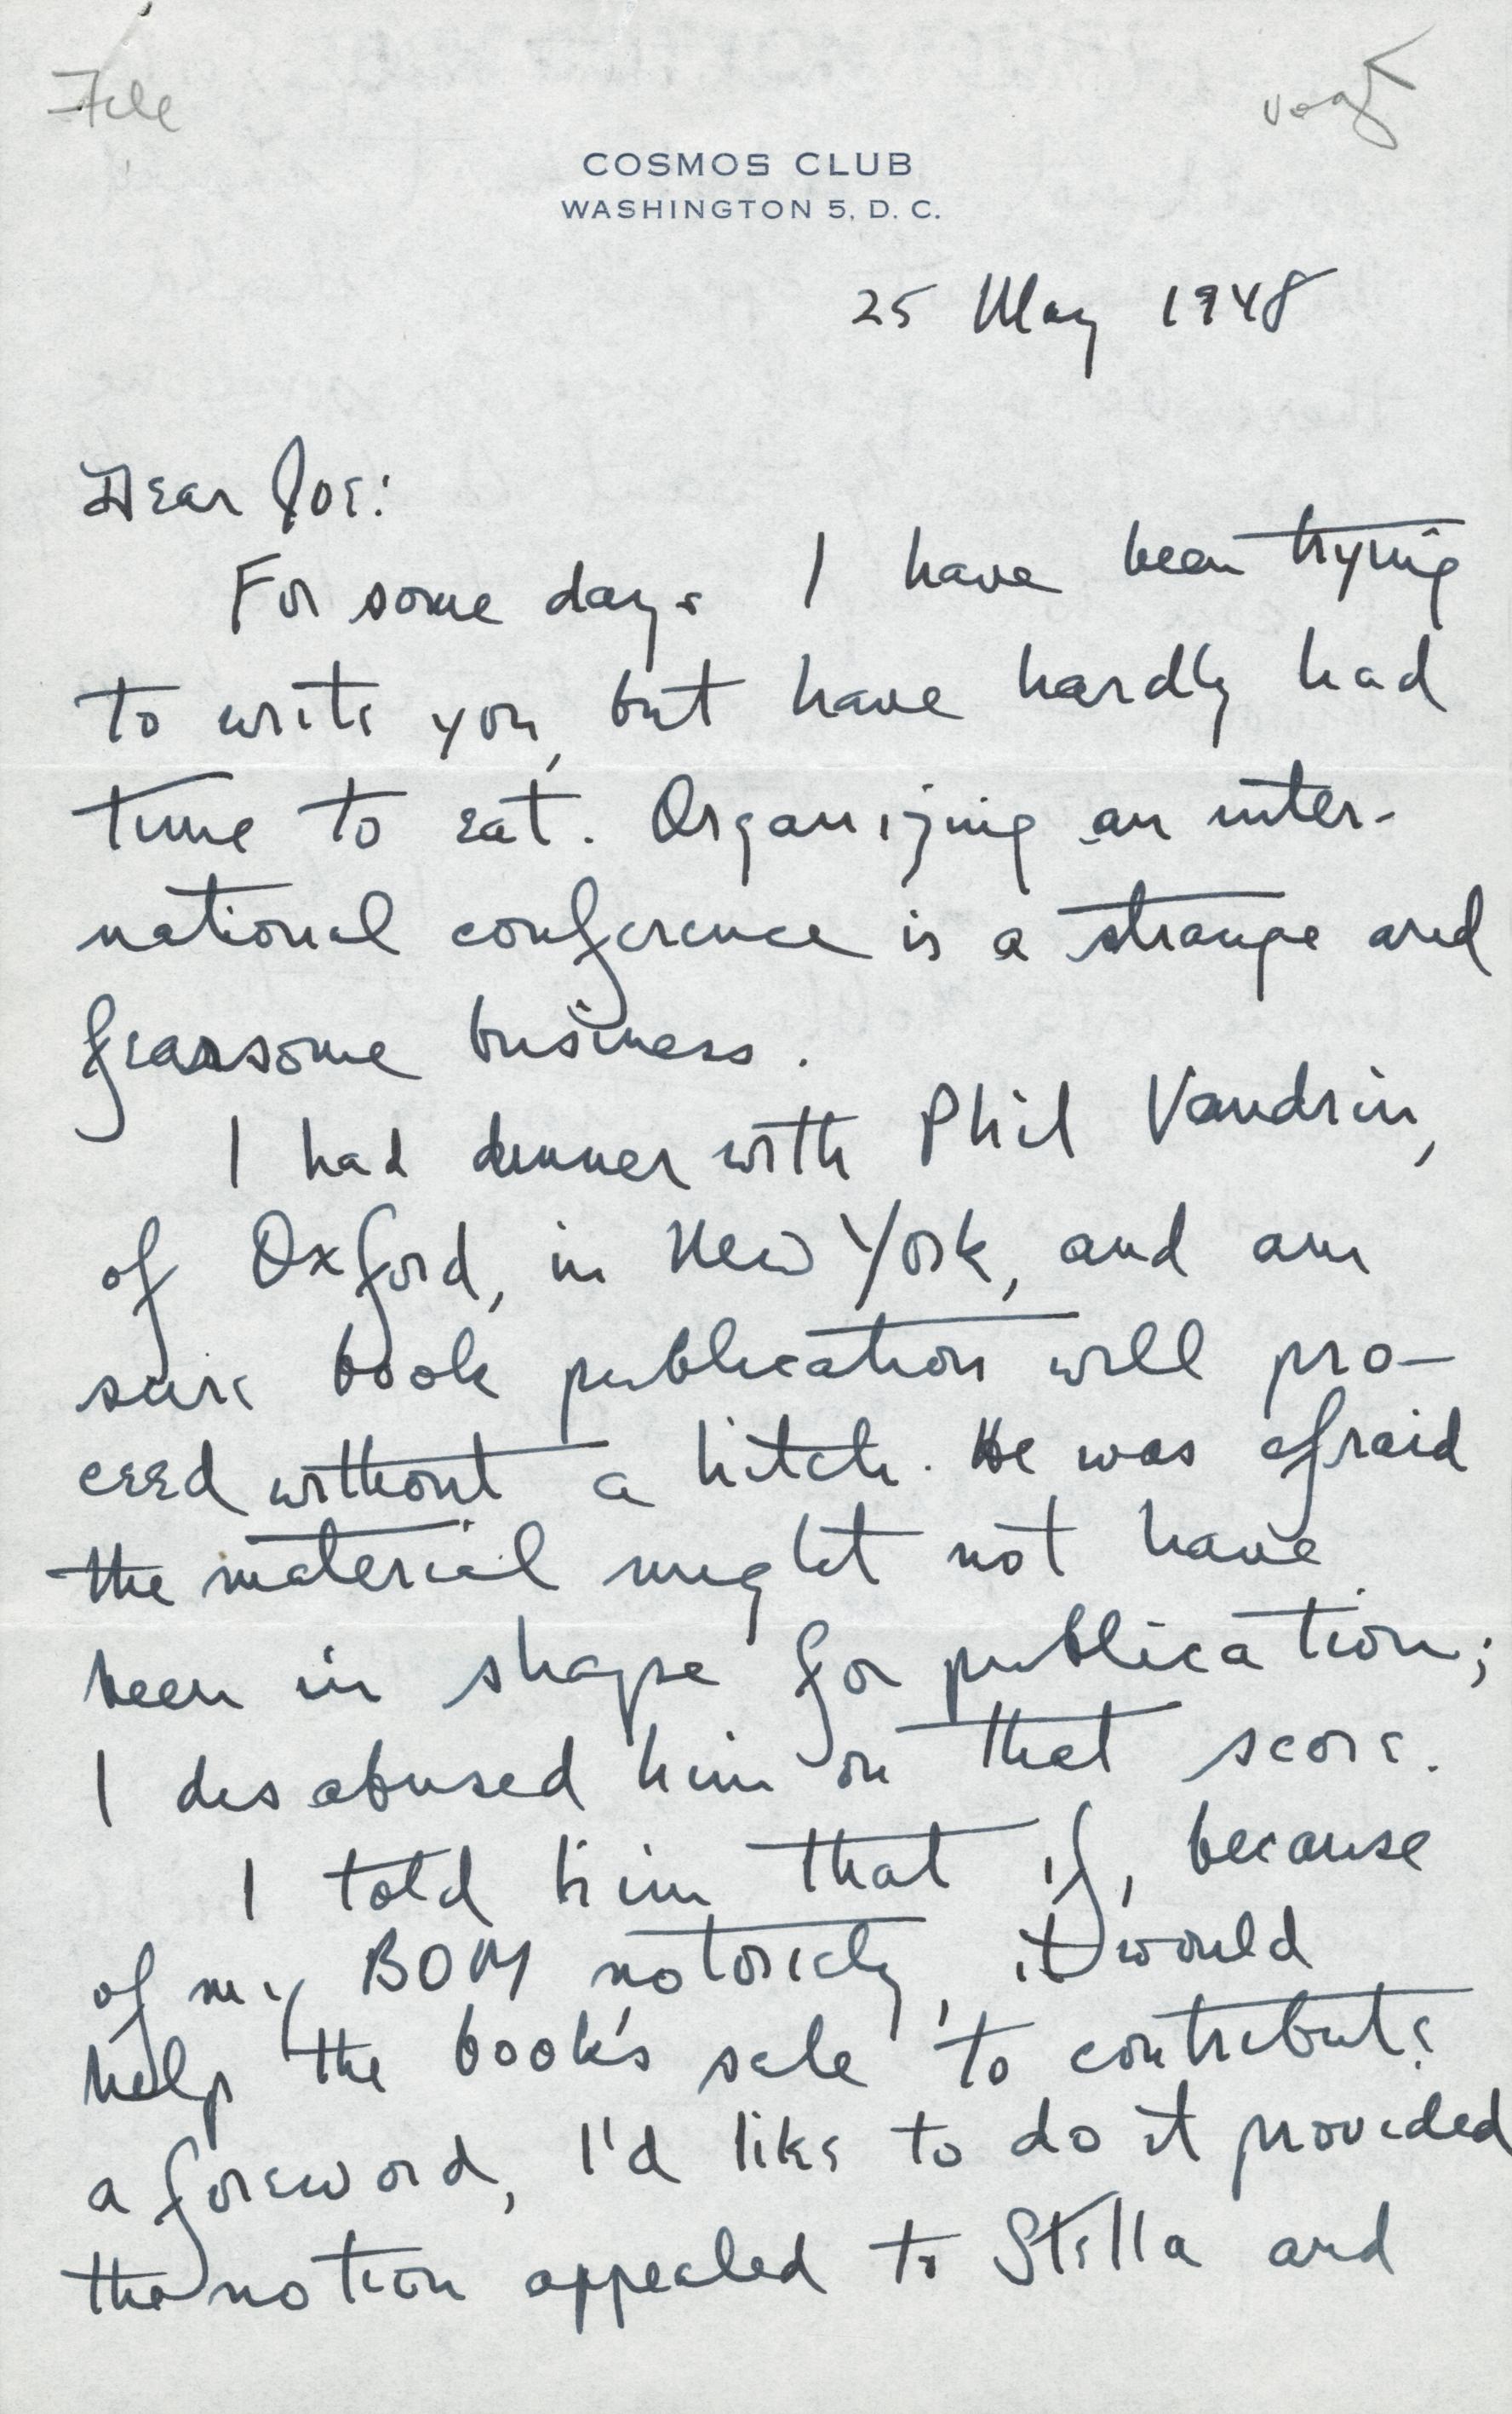 File
Vogt
COSMOS CLUB
WASHINGTON 5, D. C.
25 May 1948
Dear Joe:
For some days I have been trying
to write you, but have hardly had
time to eat. Organizing an inter-
national conference is a strange and
fearsome business.
I had dinner with Phil Vaudrin,
of Oxford, in New York, and am
sure book publication will pro-
ceed without a hitch. He was afraid
the material might not have
been in shape for publication;
I disabused him on that score.
I told him that if, because
of my BOM notoriety, it would
help the book's sale to contribute
a foreword, I'd like to do it provided
the notion appealed to Stella and